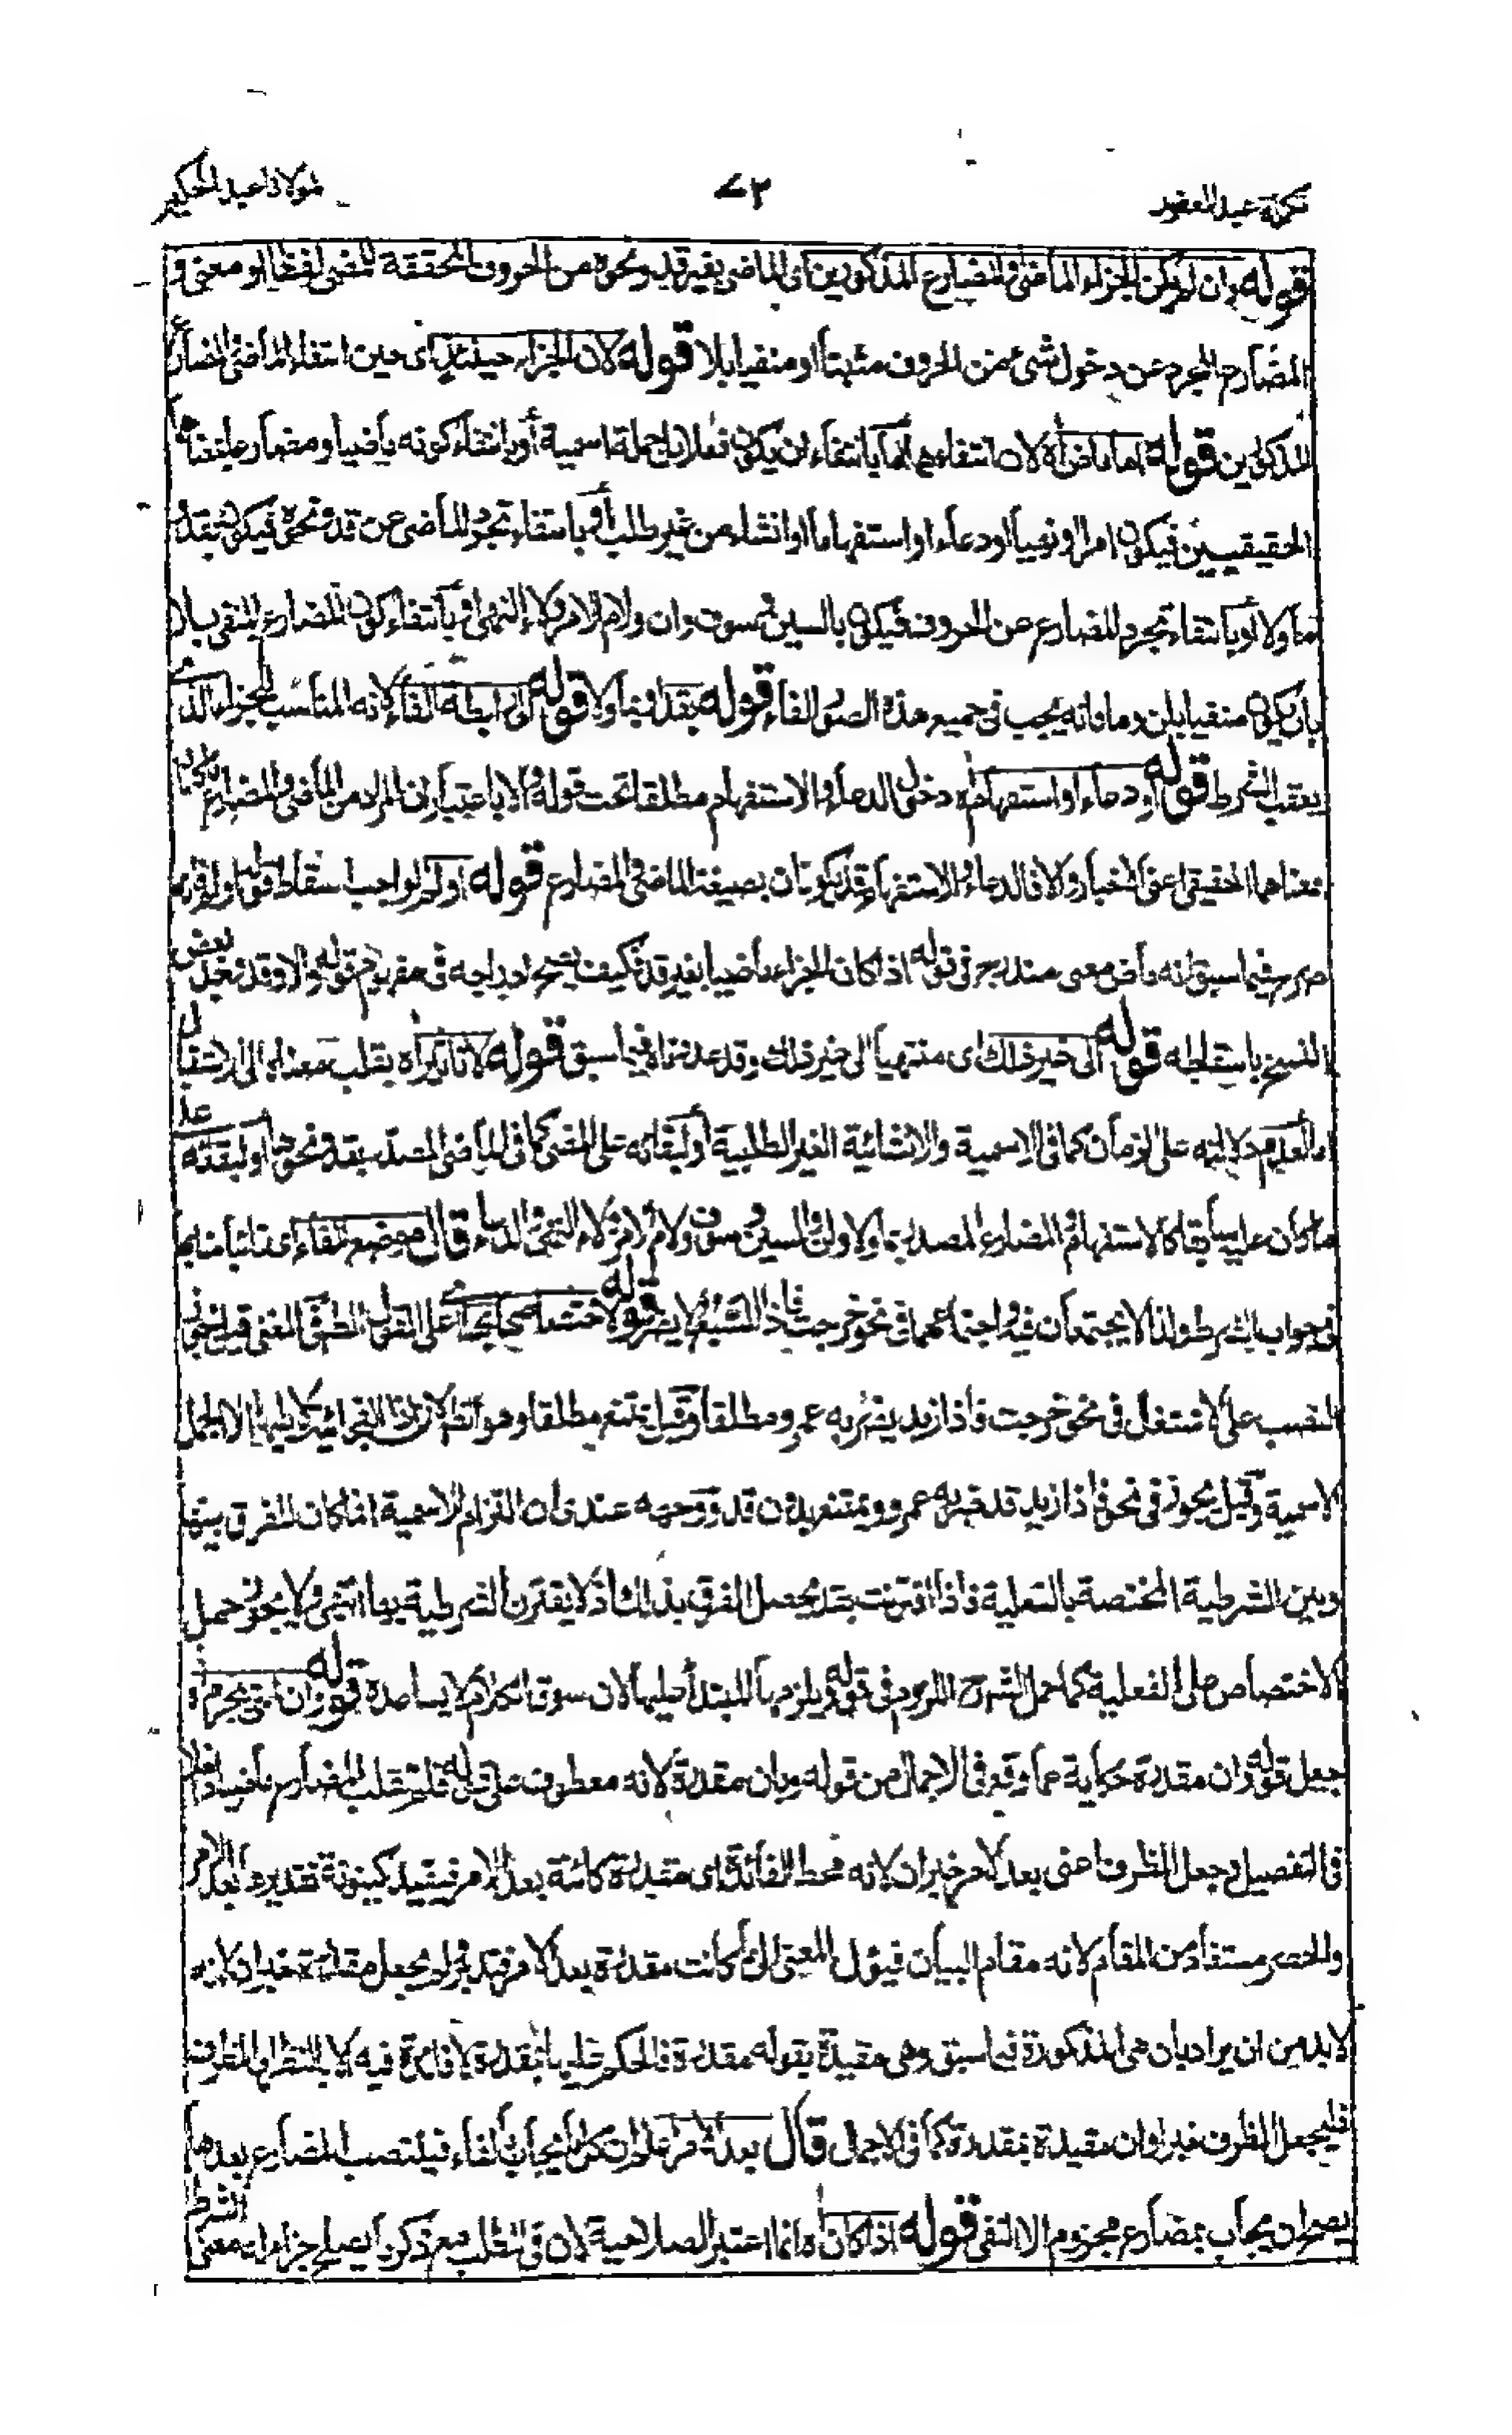 تكملة عبد الغفور
٧٢
لمولانا عبد الحكيم
قوله وان لم يكن الجزاء الماضى والمضارع المذكورين اى الماضى بغير قد ونحوه من الحروف المحققة للمضى لفظا او معنى و
المضارع المجرد عن دخول شئ من الحروف مثبتا او منفيا بلا قوله لان الجزاء حينئذ اى حين انتفاء الماضى والمضارع
المذكورين قوله اما ماض اه لان انتفاءهما اما بانتفاء ان يكون فعلا بل جملة اسمية أو بانتفاء كونه ماضيا ومضارعا بمعناهما
الحقيقيين فيكون امرا او نهيا او دعاء او استفهاما او انشاء من غير طلب أو بانتفاء تجرد الماضى عن قد ونحوه فيكون بقد او
ما ولا أو بانتفاء تجرد المضارع عن الحروف فيكون بالسين وسوف وان ولام الامر ولاء النهى أو بانتفاء كون المضارع المنفى بلا
بان يكون منفيا بلن وما فانه يجب فى جميع هذه الصور الفاء قوله بقد او بما ولا قوله لرابطة الفاء لانه المناسب للجزاء الذى
يعقب الشرط قوله او دعاء او استفهام اه دخول الدعاء والاستفهام مطلقا تحت قوله والا باعتبار ان المراد من الماضى والمضارع ما يكون
معناهما الحقيقى اعنى الاخبار والا فالدعاء والاستفهام قد يكونان بصيغة الماضى والمضارع قوله او لم الواجب اسقاط قوله او لم فانه
صرح فيما سبق انه ماض معنى مندرج فى قوله اذا كان الجزاء ماضيا بغير قد فكيف يصح ادراجه فى مفهوم قوله والا وقد نجد بعض
النسخ باسقاطه قوله الى غير ذلك اى منتهيا الى غير ذلك وقد عددناه فيما سبق قوله لا تاثيرا اه يقلب معناه الى الاستقبال
اما لعدم دلالته على الزمان كما فى الاسمية والانشائية الغير الطلبية او لبقائه على المضى كما فى الماضى المصدر بقد ونحوها او لبقائه على
ما كان عليه سابقا كالاستفهام والمضارع المصدر بما ولا ولن والسين وسوف ولام الامر ولاء النهى والدعاء قال موضع الفاء اى نائبا منابها
فى جواب الشرط ولذا لا يجتمعان فيه واجتماعهما فى نحو خرجت فاذا السبع لا يضر قوله لاختصاصها بها على القول المختار فى المغنى قيل يجوز
النصب على الاشتغال فى نحو خرجت فاذا زيد يضربه عمرو مطلقا وقيل يمتنع مطلقا وهو الظاهر لان اذا الفجائية لا يليها الا الجمل
الاسمية وقيل يجوز فى نحو فاذا زيد قد ضربه عمرو ويمتنع بدون قد ووجهه عندى ان التزام الاسمية انما كان للفرق بينها
وبين الشرطية المختصة بالفعلية فاذا اقترنت بقد يحصل الفرق بذلك اذ لا يقترن الشرطية بها انتهى ولا يجوز حمل
الاختصاص على الفعلية كما حمل الشرح اللزوم فى قوله ويلزمها المبتدأ عليها لان سوق الكلام لا يساعده قوله وان التى يجزم اه
جعل قوله وان مقدرة حكاية عما وقع فى الاجمال من قوله وبان مقدرة لانه معطوف على قوله فلم تقلب المضارع ماضيا
فى التفصيل وجعل الظرف اعنى بعد الامر خبر ان لانه محط الفائدة اى مقدرة كائنة بعد الامر فيفيد كينونة تقديرها بعد الامر
والحصر مستفاد من المقام لانه مقام البيان فيؤل المعنى الى كانت مقدرة بعد الامر ولم يجعل مقدرة خبر ان لانه
لا بد من ان يراد بان هى المذكورة فيما سبق وهى مقيدة بقوله مقدرة فالحكم عليها بمقدرة لا فائدة فيه الا بالنظر الى الظرف
فليجعل الظرف خبرا وان مقيدة بمقدرة كما فى الاجمال قال بعد الامر اعلم ان كل ما يجاب بالفاء فينتصب المضارع بعدها
يصح ان يجاب بمضارع مجزوم الا النفى قوله اذا كان اه انما اعتبر الصلاحية لان فى الطلب مع ذكر ما يصلح جزاء له معنى الشرط